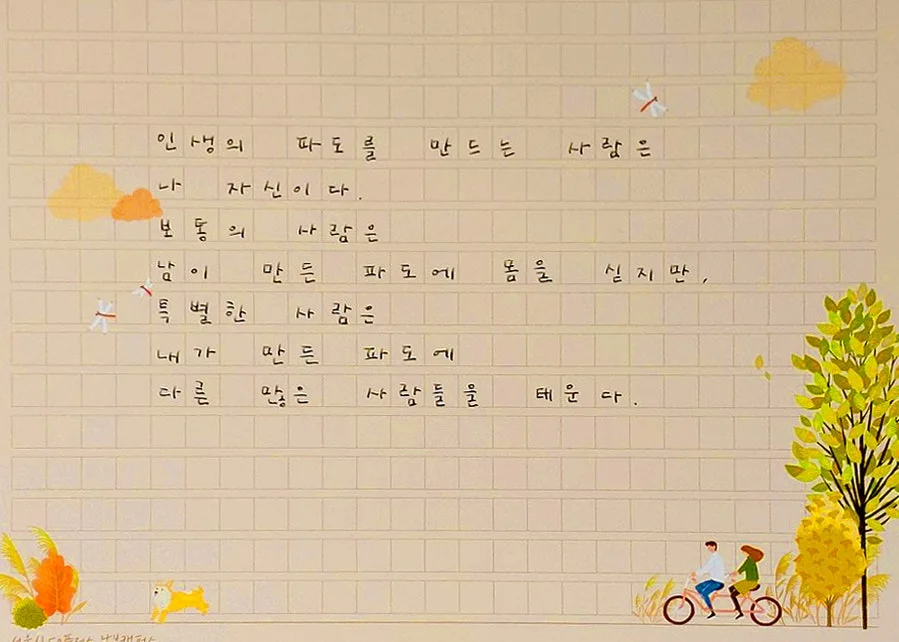 인생의 파도를 만드는 사람은
나 자신이다.
보통의 사람은
남이 만든 파도에 몸을 싣지만,
특별한 사람은
내가 만든 파도에
다른 많은 사람들을 태운다.